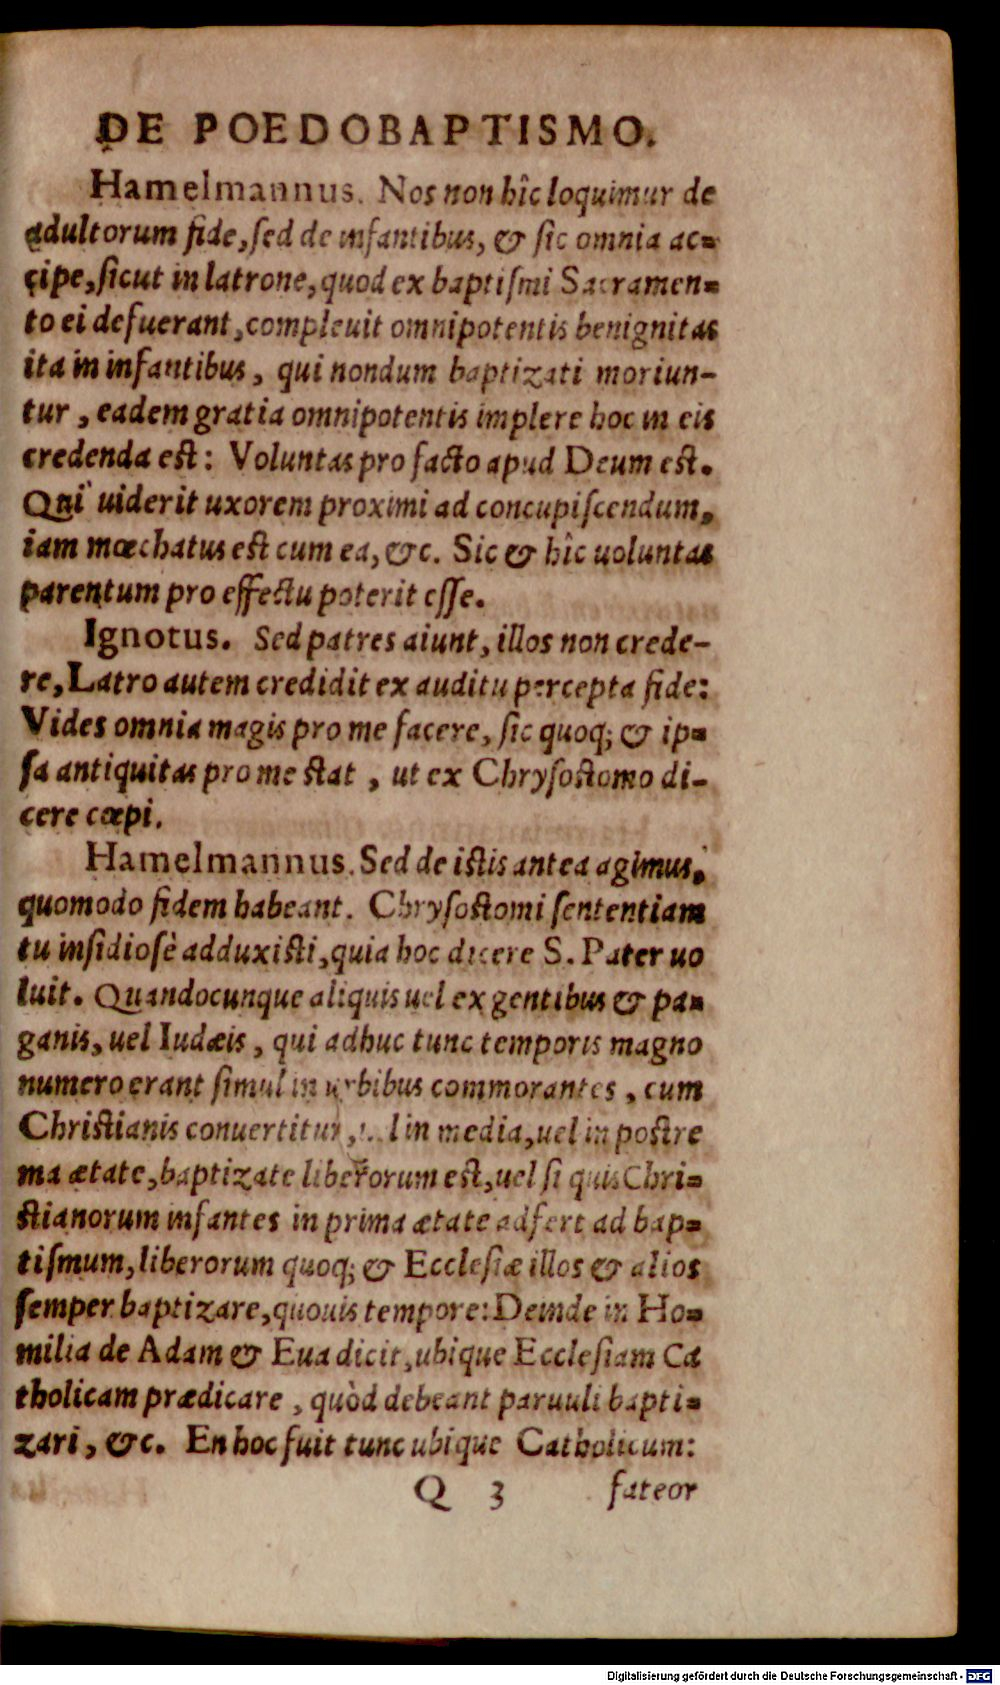 DE POEDOBAPTISMO.
Hamelmannus. Nos non hîc loquimur de
adultorum fide, sed de infantibus, & sic omnia ac=
cipe, sicut in latrone, quod ex baptismi Sacramen=
to ei defuerant, compleuit omnipotentis benignitas
ita in infantibus, qui nondum baptizati moriun-
tur, eadem gratia omnipotentis implere hoc in eis
credenda est: Voluntas pro facto apud Deum est.
Qui uiderit uxorem proximi ad concupiscendum,
iam mœchatus est cum ea, &c. Sic & hîc uoluntas
parentum pro effectu poterit esse.
Ignotus. Sed patres aiunt, illos non crede-
re, Latro autem credidit ex auditu percepta fide:
Vides omnia magis pro me facere, sic quoq; & ip=
sa antiquitas pro me stat, ut ex Chrysostomo di-
cere cœpi.
Hamelmannus. Sed de istis antea agimus,
quomodo fidem habeant. Chrysostomi sententiam
tu insidiosè adduxisti, quia hoc dicere S. Pater uo
luit. Quandocunque aliquis uel ex gentibus & pa=
ganis, uel Iudæis, qui adhuc tunc temporis magno
numero erant simul in urbibus commorantes, cum
Christianis conuertitur, l in media, uel in postre
ma ætate, baptizate liberorum est, uel si quis Chri=
stianorum infantes in prima ætate adfert ad bap=
tismum, liberorum quoq; & Ecclesiæ illos & alios
semper baptizare, quouis tempore: Deinde in Ho=
milia de Adam & Eua dicit, ubique Ecclesiam Ca
tholicam prædicare, quòd debeant paruuli bapti=
zari, &c. En hoc fuit tunc ubique Catholicum:
Q 3 fateor
Digitalisierung gefördert durch die Deutsche Forschungsgemeinschaft - DFG